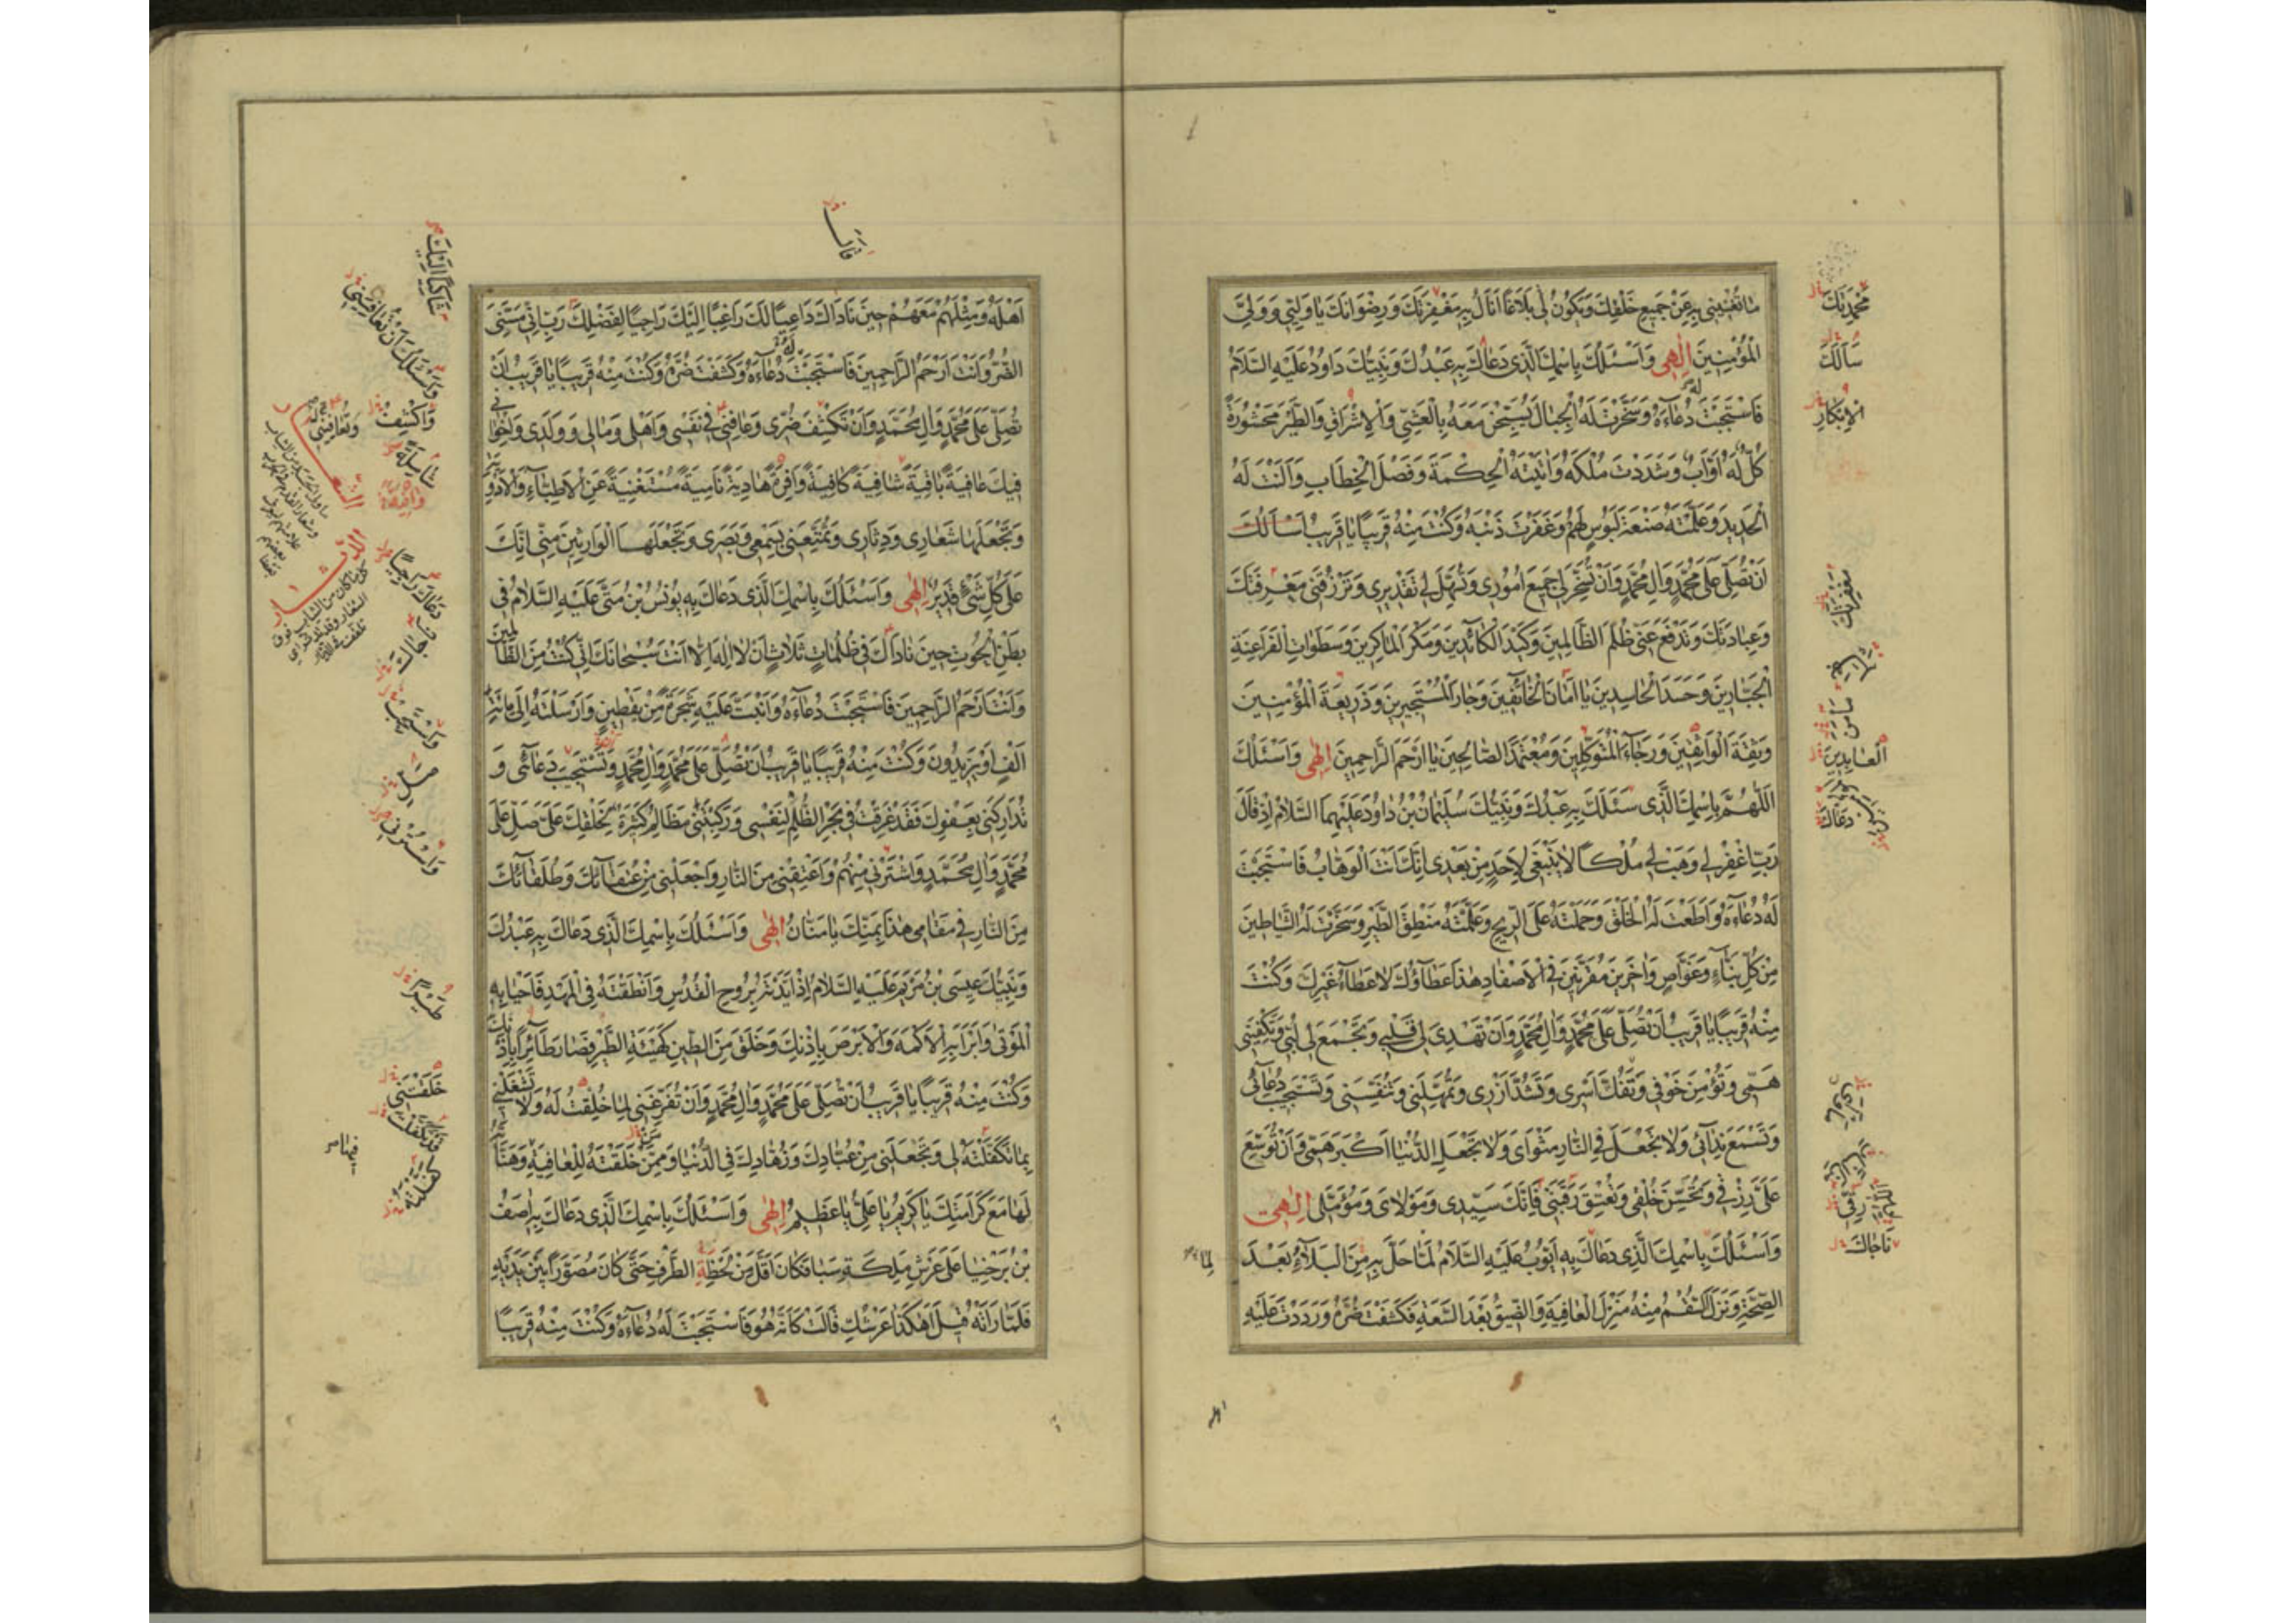 ما تغنيني به عن جميع خلقك وتكون لى بلاغا انال به مغفرتك ورضوانك يا وليي وولى
المؤمنين الهى واسئلك باسمك الذى دعاك به عبدك ونبيك داود عليه السلام
فاستجبت له دعآءه وسخرت له الجبال يسبحن معه بالعشى والاشراق والطير محشورة
كل له اواب وشددت ملكه واتيته الحكمة وفصل الخطاب والنت له
الحديد وعلمته صنعة لبوس لهم وغفرت ذنبه وكنت منه قريبا يا قريب اسالك
ان تصلى على محمد وال محمد وان تسخر لى جميع امورى وتسهل لى تقديرى وترزقنى مغفرتك
وعبادتك وتدفع عنى ظلم الظالمين وكيد الكائدين ومكر الماكرين وسطوات الفراعنة
الجبارين وحسد الحاسدين يا امان الخائفين وجار المستجيرين وذريعة المؤمنين
وثقة الواثقين ورجاء المتوكلين ومعتمد الصالحين يا ارحم الراحمين الهى واسئلك
اللهم باسمك الذى سئلك به عبدك ونبيك سليمان بن داود عليهما السلام اذ قال
رب اغفر لى وهب لى ملكا لا ينبغى لاحد من بعدى انك انت الوهاب فاستجبت
له دعآءه واطعت له الخلق وحملته على الريح وعلمته منطق الطير وسخرت له الشياطين
من كل بنآء وغواص واخرين مقرنين فى الاصفاد هذا عطآؤك لا عطآء غيرك وكنت
منه قريبا يا قريب ان تصلى على محمد وال محمد وان تهدى لى قلبى وتجمع لى لبى وتكفينى
همى وتؤمن خوفى وتفك اسرى وتشد ازرى وتمهلنى وتنفسنى وتستجيب دعآئى
وتسمع ندآئى ولا تجعل فى النار مثواى ولا تجعل الدنيا اكبر همى وان توسع
على رزقى وتحسن خلقى وتعتق رقبتى فانك سيدى ومولاى ومؤملى الهى
واسئلك باسمك الذى دعاك به ايوب عليه السلام لما حل به من البلآء بعد
الصحة ونزل السقم منه منزل العافية والضيق بعد السعة فكشفت ضره ورددت عليه
محمدتك
سالك
الابكار
معفرتك
العابدين
دعاك
ناجاك
لما
اهله ومثلهم معهم حين ناداك داعيا لك راغبا اليك راجيا لفضلك رب انى مسنى
الضر وانت ارحم الراحمين فاستجبت له دعآءه وكشفت ضره وكنت منه قريبا يا قريب ان
تصلى على محمد وال محمد وان تكشف ضرى وعافنى فى نفسى واهلى ومالى وولدى واخوانى
فيك عافية باقية شافية كافية وافرة هادية نامية مستغنية عن الاطبآء والادوية
وتجعلها شعارى ودثارى وتمتعنى بسمعى وبصرى وتجعلهما الوارثين منى انك
على كل شئ قدير الهى واسئلك باسمك الذى دعاك به يونس بن متى عليه السلام فى
بطن الحوت حين ناداك فى ظلمات ثلاث ان لا اله الا انت سبحانك انى كنت من الظالمين
وانت ارحم الراحمين فاستجبت دعآءه وانبت عليه شجرة من يقطين وارسلته الى مائة
الف او يزيدون وكنت منه قريبا يا قريب ان تصلى على محمد وال محمد وتستجيب دعائى و
تداركنى بعفوك فقد غرقت فى بحر الظلم لنفسى وركبتنى مظالم كثيرة لخلقك على صل على
محمد وال محمد واسترنى منهم واعتقنى من النار واجعلنى من عتقآئك وطلقآئك
من النار فى مقامى هذا بمنك يا منان الهى واسئلك باسمك الذى دعاك به عبدك
ونبيك عيسى بن مريم عليه السلام اذ ايدته بروح القدس وانطقته فى المهد فاحيا به
الموتى وابرا به الاكمه والابرص باذنك وخلق من الطين كهيئة الطير فصار طآئرا باذنك
وكنت منه قريبا يا قريب ان تصلى على محمد وال محمد وان تفرغنى لما خلقت له ولا تشغلنى
بما تكفلته لى وتجعلنى من عبادك وزهادك فى الدنيا وممن خلقته للعافية وهنأته
بها مع كرامتك يا كريم يا على يا عظيم الهى واسئلك باسمك الذى دعاك به اصف
بن برخيا على عرش ملكة سبا فكان اقل من لحظة الطرف حتى كان مصورا بين يديه
فلما راته قيل اهكذا عرشك قالت كانه هو فاستجبت له دعآءه وكنت منه قريبا
شاكيا اليك
واسئلك ان تعافينى
واكشف
وتعافينى
الشعار
الدثار
خلقتنى